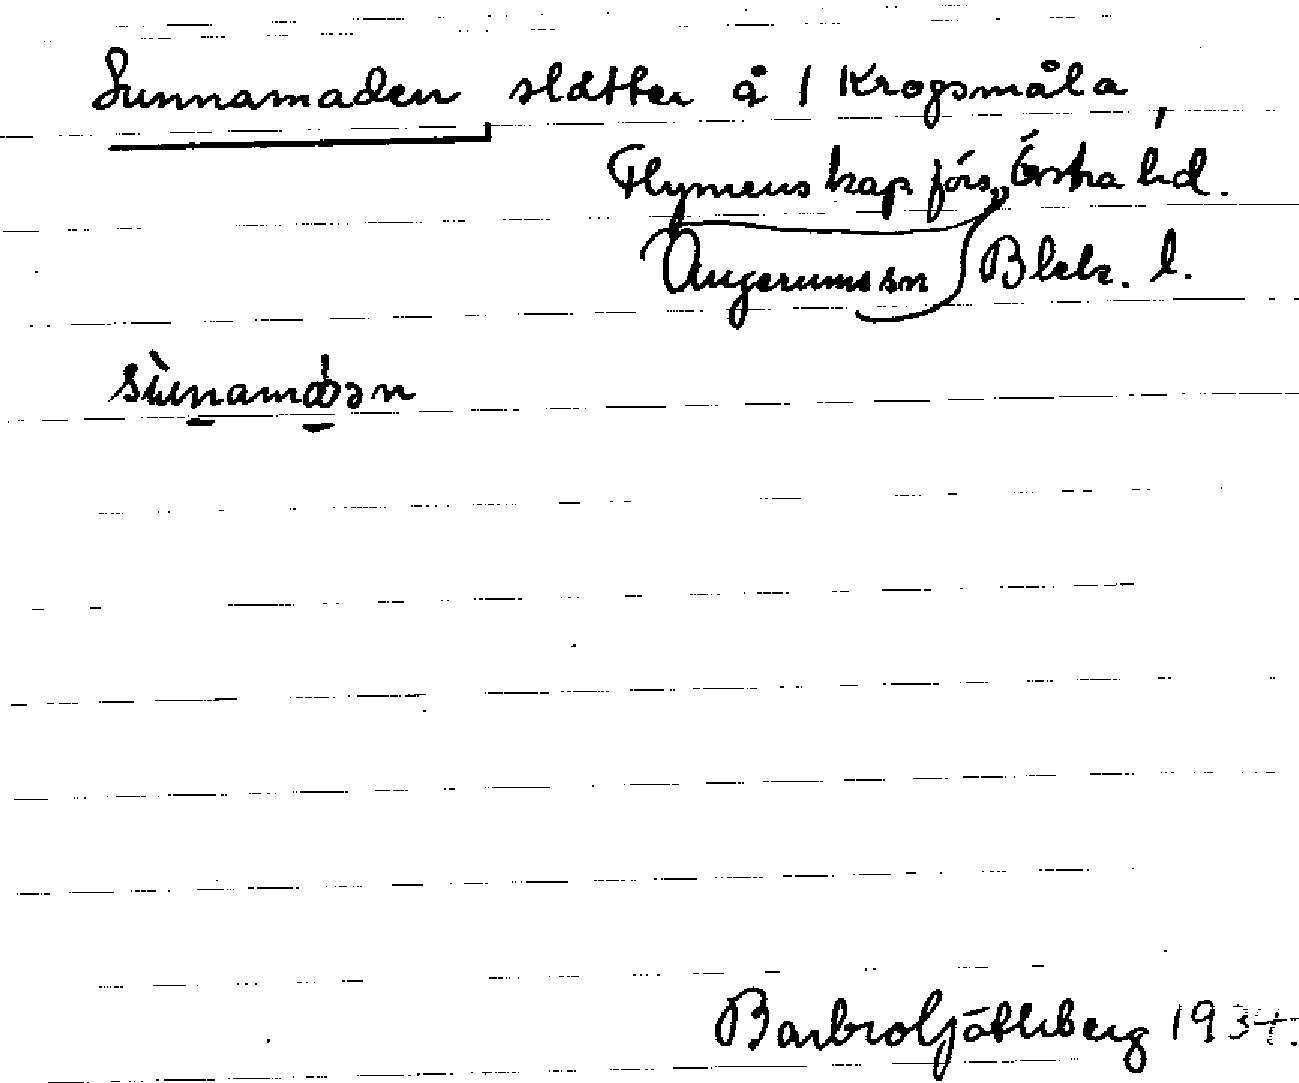 Sunnamaden slåtter å 1 Krogsmåla,
Flymens kap förs, Östra hd.
Augerums sn Blek. l.
sùnamáðən
Barbro Ljöthberg 1934.